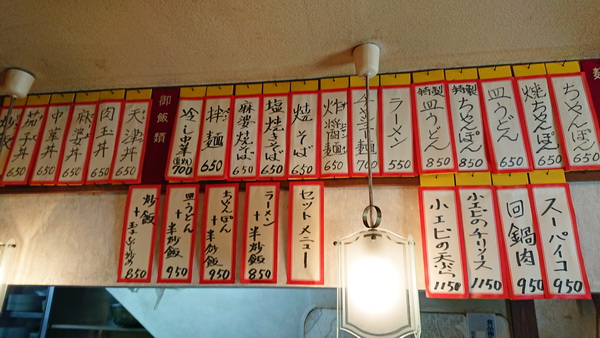 ちゃんぽん 650
焼ちゃんぽん 650
皿うどん 650
特製ちゃんぽん 850
特製皿うどん 850
ラーメン 550
チャーシュー麺 700
炸醤麺 650
焼そば 650
塩焼きそば 650
麻婆焼そば 650
拌麺 650
冷し中華 700
御飯類
天津丼 650
肉玉丼 650
麻婆丼 650
中華丼 650
茄子丼 650
炒飯
スーパイコ 950
回鍋肉 950
小エビのチリソース 1150
小エビの天ぷら 1150
セットメニュー
ラーメン+半炒飯 850
ちゃんぽん+半炒飯 950
皿うどん+半炒飯 950
炒飯+ 850